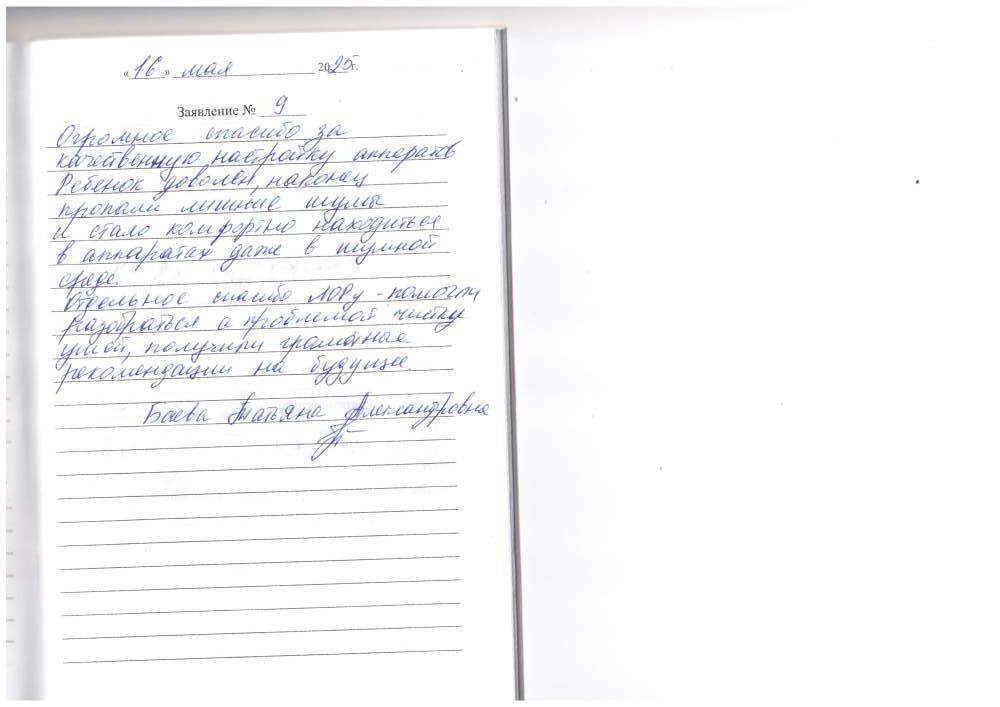 «16» мая 2025г.
Заявление № 9
Огромное спасибо за
качественную настройку аппаратов
Ребенок доволен, наконец
пропали лишние шумы
и стало комфортно находиться
в аппаратах даже в шумной
среде.
Отдельное спасибо ЛОРу - помогли
разобраться с проблемой чистки
ушей, получили грамотные
рекомендации на будущее.
Баева Татьяна Александровна